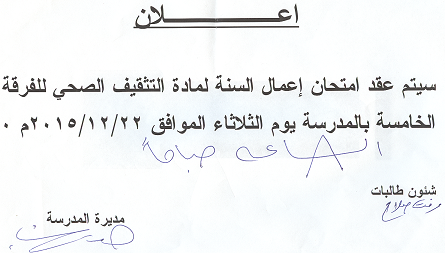 اعــــلان
سيتم عقد امتحان إعمال السنة لمادة التثقيف الصحي للفرقة
الخامسة بالمدرسة يوم الثلاثاء الموافق ٢٠١٥/١٢/٢٢م ٠
الساعه صباحاً
شئون طالبات
مديرة المدرسة